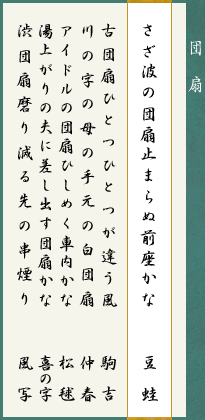 団扇
さざ波の団扇止まらぬ前座かな 豆蛙
古団扇ひとつひとつが違う風 駒吉
川の字の母の手元の白団扇 仲春
アイドルの団扇ひしめく車内かな 松毬
湯上がりの夫に差し出す団扇かな 喜の字
渋団扇磨り減る先の串煙り 風写